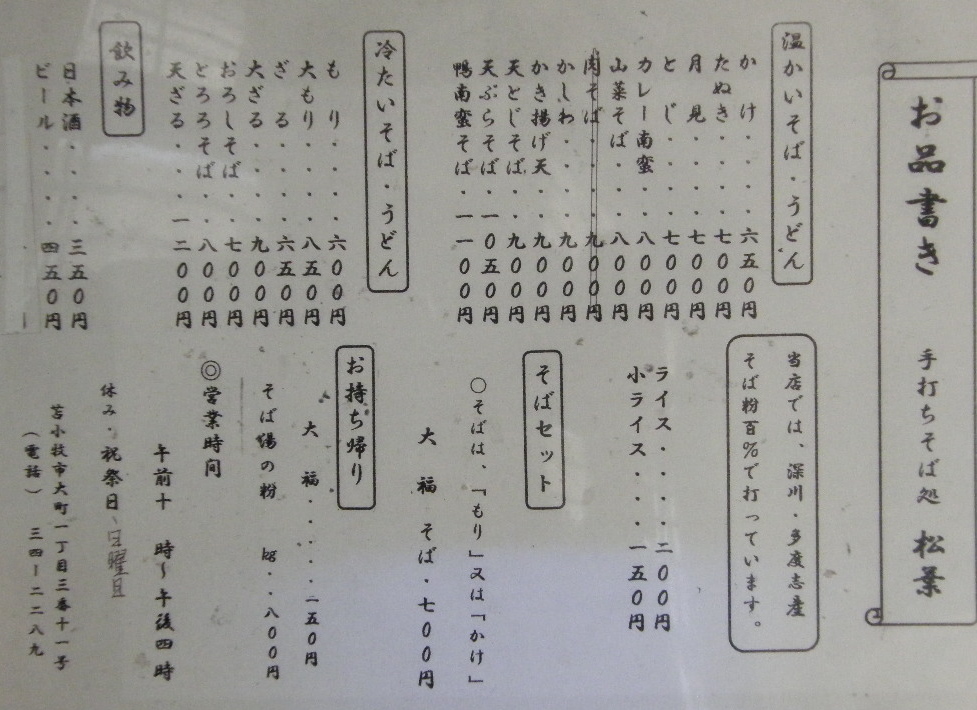 お品書き 手打ちそば処 松葉
温かいそば・うどん
かけ・・・六五0円
たぬき・・・七00円
月見・・・七00円
とじ・・・七00円
カレー南蛮・八00円
山菜そば・・八00円
肉そば・・・九00円
かしわ・・・九00円
かき揚げ天・九00円
天とじそば・九00円
天ぷらそば・一0五0円
鴨南蛮そば・一一00円
冷たいそば・うどん
もり・・・・六00円
大もり・・・八五0円
ざる・・・・六五0円
大ざる・・・九00円
おろしそば・七00円
とろろそば・八00円
天ざる・・・一二00円
飲み物
日本酒・・・三五0円
ビール・・・四五0円
当店では、深川・多度志産
そば粉百%で打っています。
ライス・・・二00円
小ライス・・・一五0円
そばセット
○そばは、「もり」又は「かけ」
大福そば・七00円
お持ち帰り
大福・・・・一五0円
そば湯の粉 kg・・八00円
◎営業時間
午前十時～午後四時
休み・祝祭日、日曜日
苫小牧市大町一丁目三番十一号
(電話) 三四ー二二八九